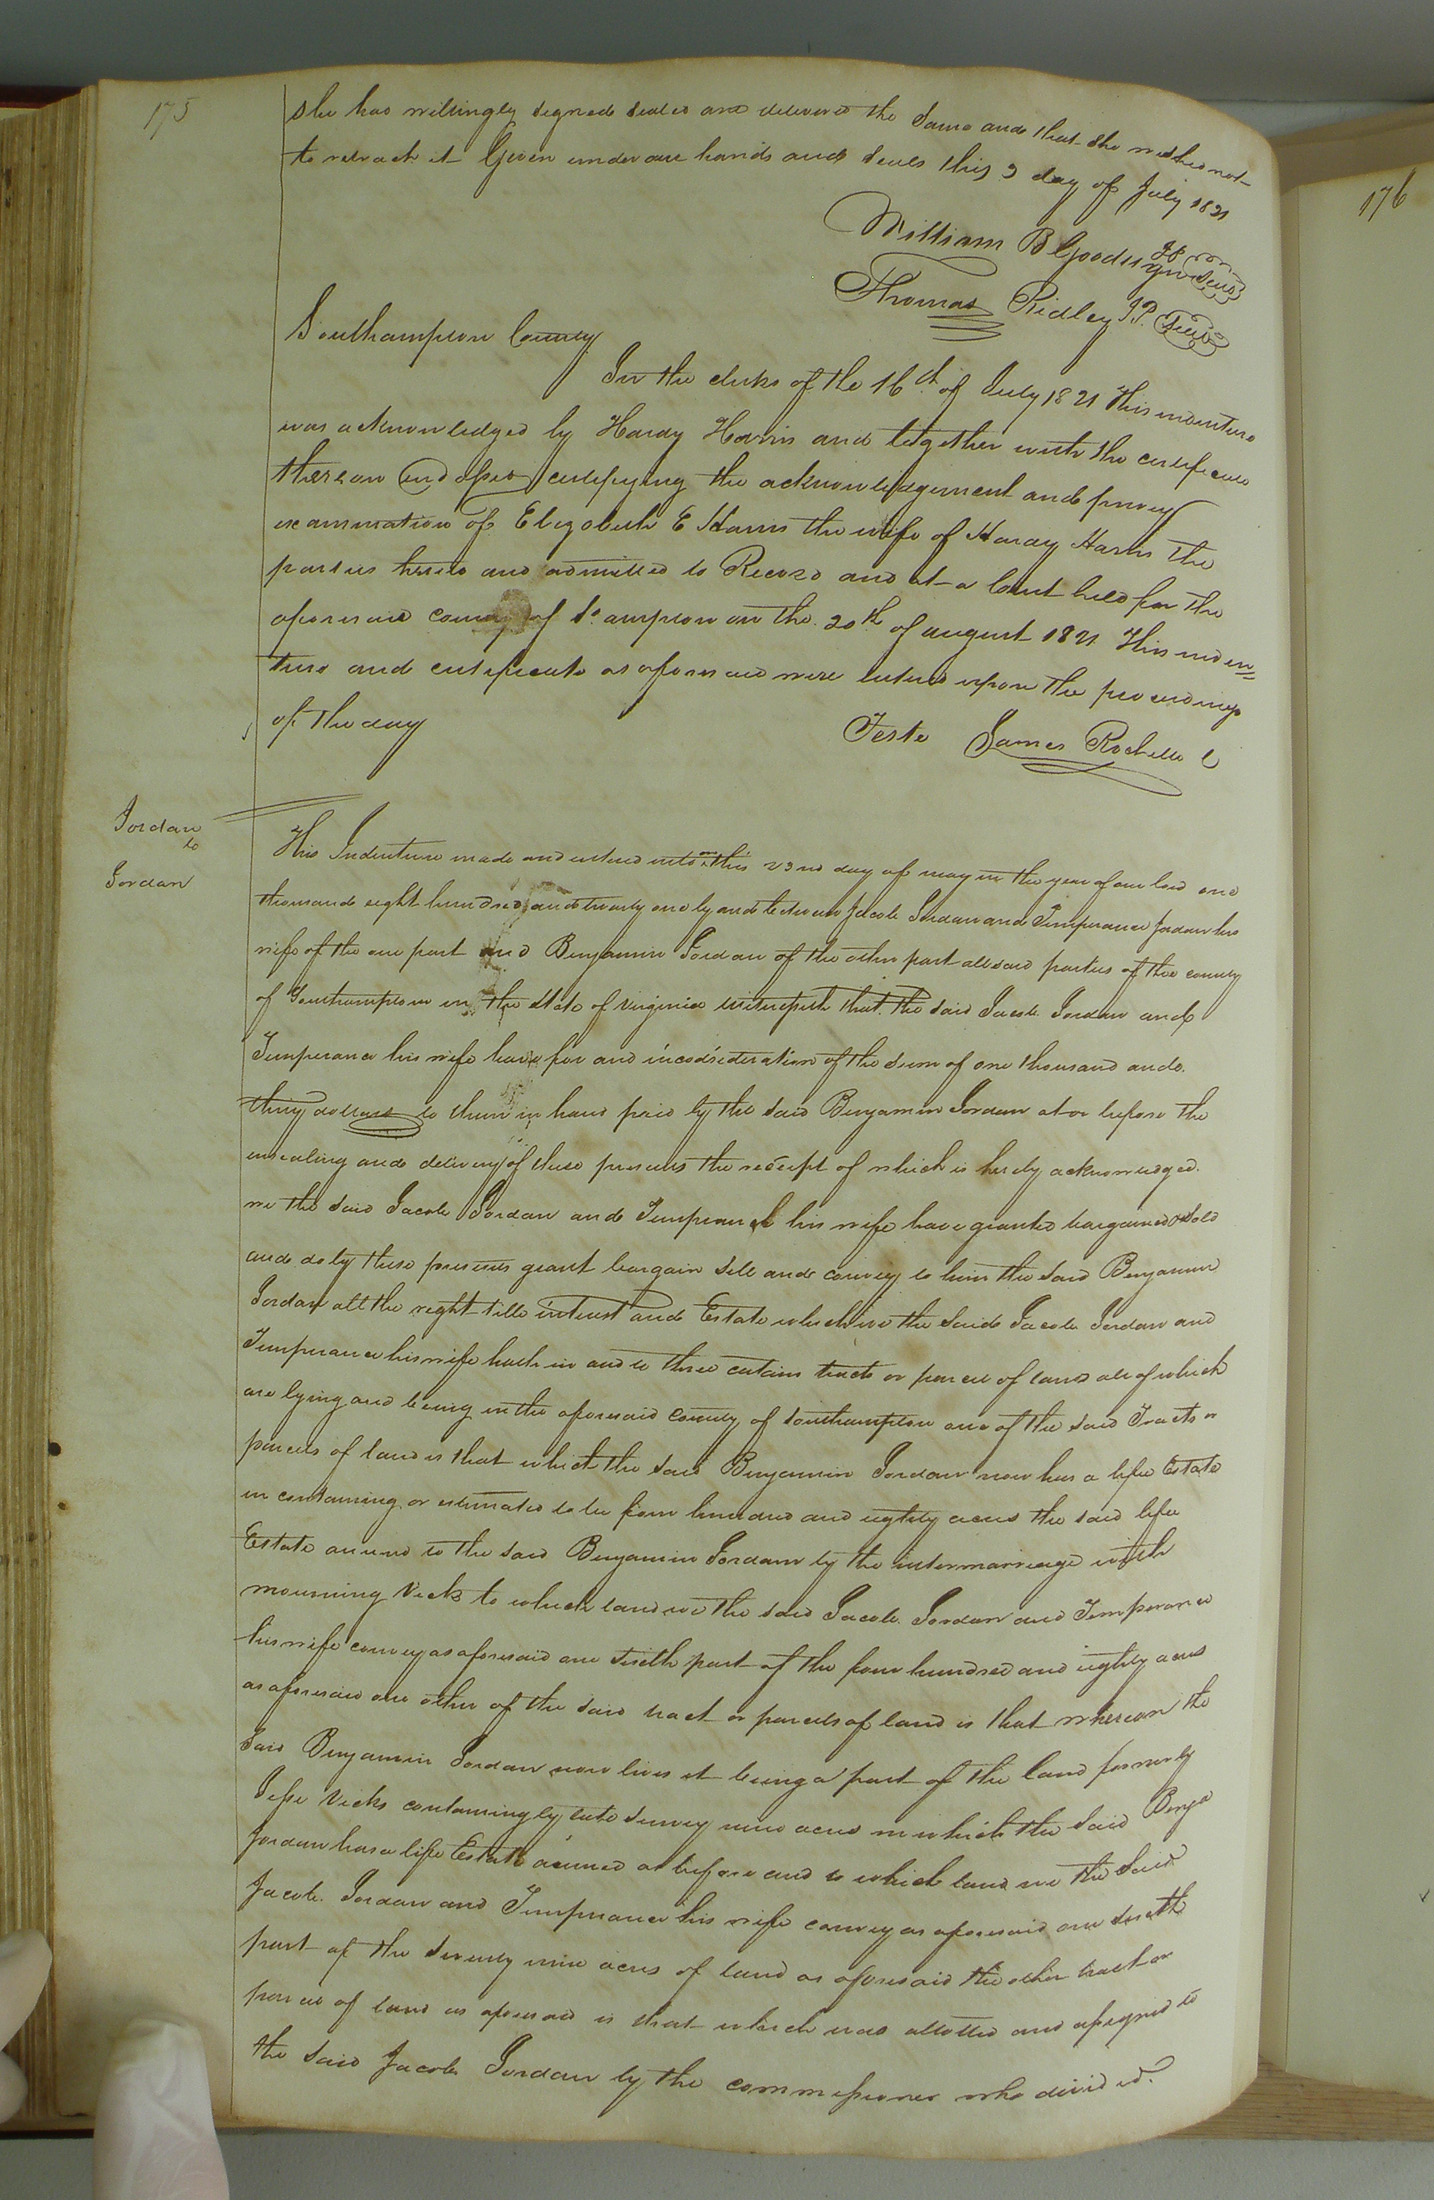 175
she has willingly signed sealed and delivered the Same and that she wishes not
to retract it Given under our hands and Seals this 9 day of July 1821
William B Goodwyn JP Seal
Thomas Ridley J.P. Seal
Southampton County
In the clerks of the 16th of July 1821 This indenture
was acknowledged by Hardy Harris and together with the certificate
thereon Endorsed certifying the acknowledgement and privey
examination of Elizabeth E Harris the wife of Hardy Harris the
parties hereto and admitted to Record and at a Court held for the
aforesaid county of So ampton on the 20th of august 1821 This inden=
ture and certificate as aforesaid were entered upon the proceedings
of the day
Teste James Rochelle C
Jordan
to
Jordan
This Indenture made and entered into on this 23nd day of may in the year of our lord one
thousand eight hundred and twenty one by and between Jacob Jordan and Temperance Jordan his
wife of the one part and Benjamin Jordan of the other part all said parties of the county
of Southampton in the State of Virginia Witnesseth that the said Jacob Jordan and
Temperance his wife have for and in cosideration of the sum of one thousand and
thirty dollars to them in hand paid by the said Benjamin Jordan at or before the
ensealing and delivery of these presents the receipt of which is herby acknowledged
we the said Jacob Jordan and Temperance his wife have granted bargained & sold
and do by these presents grant bargain sell and convey to him the said Benjamin
Jordan all the right title intrust and Estate which we the said Jacob Jordan and
Temperance his wife hath in and to three certain tracts or parcel of land all of which
are lying and being in the aforesaid County of Southampton one of the said Tracts or
parcels of land is that which the said Benjamin Jordan now has a life Estate
in containing or estimated to be four hundred and eighty acres the said life
Estate acrued to the said Benjamin Jordan by the intermarriage with
mourning Vicks to which land we the said Jacob Jordan and Temperance
his wife convey as aforesaid one sixth part of the four hundred and eighty acres
as aforesaid one other of the said tract or parcels of land is that whereon the
said Benjamin Jordan now lives it being a part of the land formerly
Jesse Vicks containing by late survey nine acres in which the said Benja
Jordan has a life Estate acrued as before and to which land we the said
Jacob Jordan and Temperance his wife convey as aforesaid one sixth
part of the seventy nine acres of land as aforesaid the other tract or
parcel of land as aforesaid is that which was allotted and assigned to
the said Jacob Jordan by the commissioners who divided
176